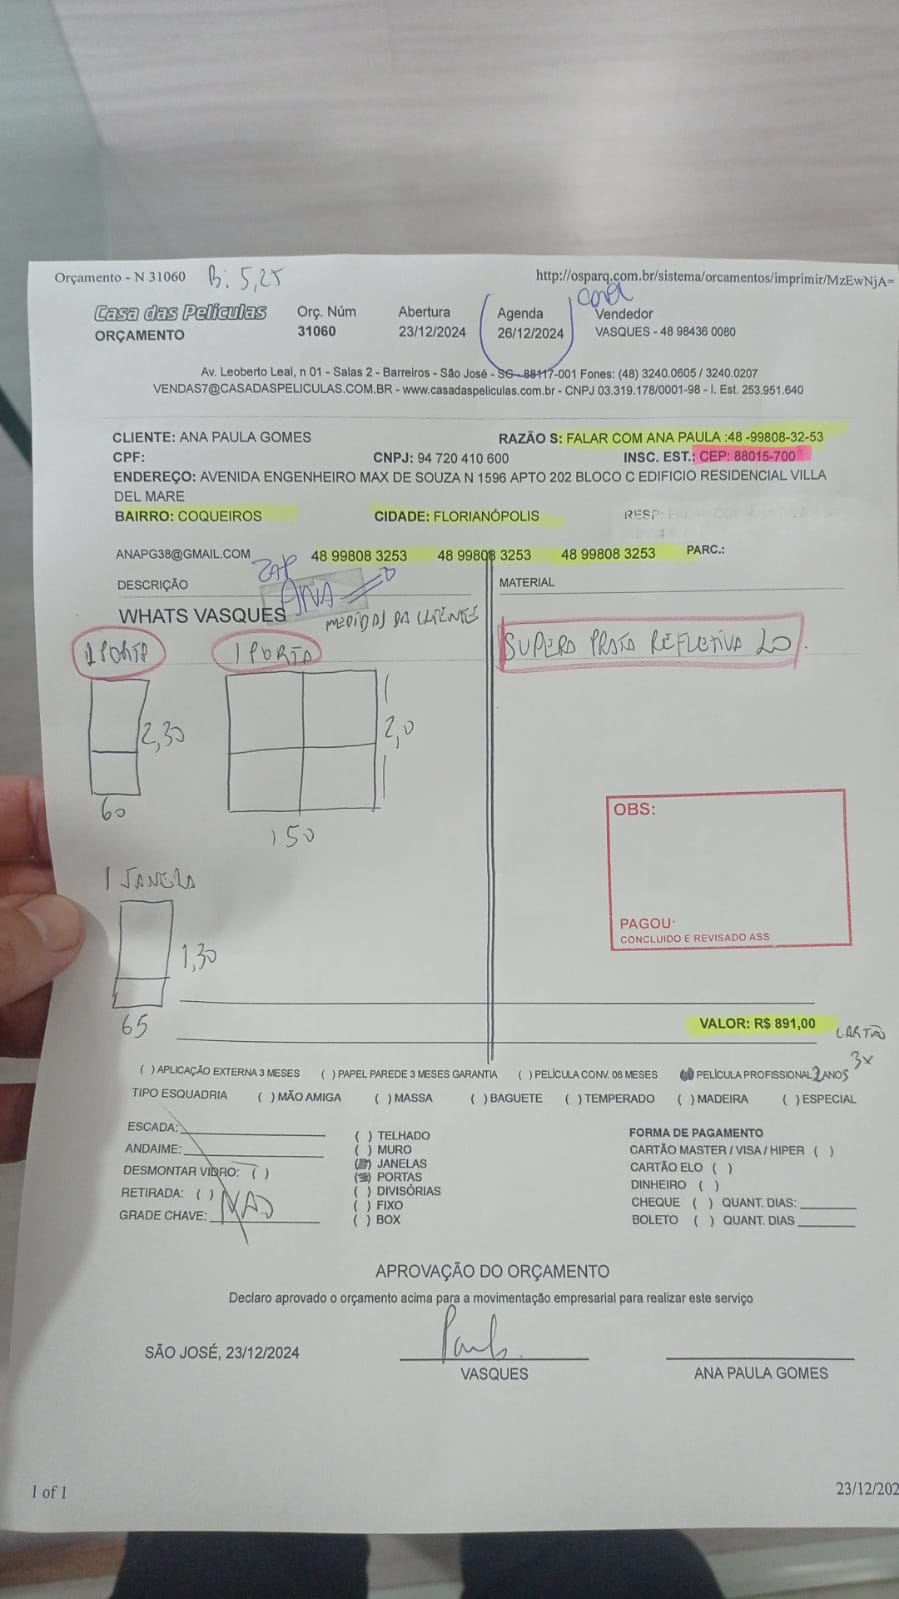 Orçamento - N 31060 B: 5,25 http://osparq.com.br/sistema/orcamentos/imprimir/MzEwNjA=
Casa das Películas Orç. Núm Abertura Agenda Vendedor
ORÇAMENTO 31060 23/12/2024 26/12/2024 VASQUES - 48 98436 0080
Av. Leoberto Leal, n 01 - Salas 2 - Barreiros - São José - SC - 88117-001 Fones: (48) 3240.0605 / 3240.0207
VENDAS7@CASADASPELICULAS.COM.BR - www.casadaspeliculas.com.br - CNPJ 03.319.178/0001-98 - I. Est. 253.951.640
CLIENTE: ANA PAULA GOMES RAZÃO S: FALAR COM ANA PAULA :48 -99808-32-53
CPF: CNPJ: 94 720 410 600 INSC. EST.: CEP: 88015-700
ENDEREÇO: AVENIDA ENGENHEIRO MAX DE SOUZA N 1596 APTO 202 BLOCO C EDIFICIO RESIDENCIAL VILLA
DEL MARE
BAIRRO: COQUEIROS CIDADE: FLORIANÓPOLIS RESP:
ANAPG38@GMAIL.COM 48 99808 3253 48 99808 3253 48 99808 3253 PARC.:
ZAP
DESCRIÇÃO ANA MATERIAL
WHATS VASQUES MEDIDAS DA CLIENTE
1 PORTA 1 PORTA SUPERO PRATA REFLETIVA 20
2,30 2,0
60
150
1 JANELA
OBS:
1,30
PAGOU
CONCLUIDO E REVISADO ASS
65
VALOR: R$ 891,00 CARTÃO
3x
( ) APLICAÇÃO EXTERNA 3 MESES ( ) PAPEL PAREDE 3 MESES GARANTIA ( ) PELÍCULA CONV. 06 MESES ( ) PELÍCULA PROFISSIONAL 2 ANOS
TIPO ESQUADRIA ( ) MÃO AMIGA ( ) MASSA ( ) BAGUETE ( ) TEMPERADO ( ) MADEIRA ( ) ESPECIAL
ESCADA: ( ) TELHADO FORMA DE PAGAMENTO
ANDAIME: ( ) MURO CARTÃO MASTER / VISA / HIPER ( )
DESMONTAR VIDRO: ( ) ( ) JANELAS CARTÃO ELO ( )
RETIRADA: ( ) NAO ( ) PORTAS DINHEIRO ( )
GRADE CHAVE: ( ) DIVISÓRIAS CHEQUE ( ) QUANT. DIAS:
( ) FIXO BOLETO ( ) QUANT. DIAS
( ) BOX
APROVAÇÃO DO ORÇAMENTO
Declaro aprovado o orçamento acima para a movimentação empresarial para realizar este serviço
SÃO JOSÉ, 23/12/2024
VASQUES ANA PAULA GOMES
1 of 1 23/12/202